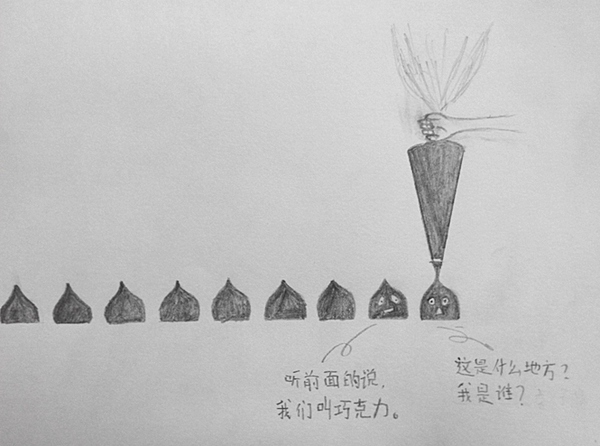 听前面的说,
我们叫巧克力。
这是什么地方?
我是谁?